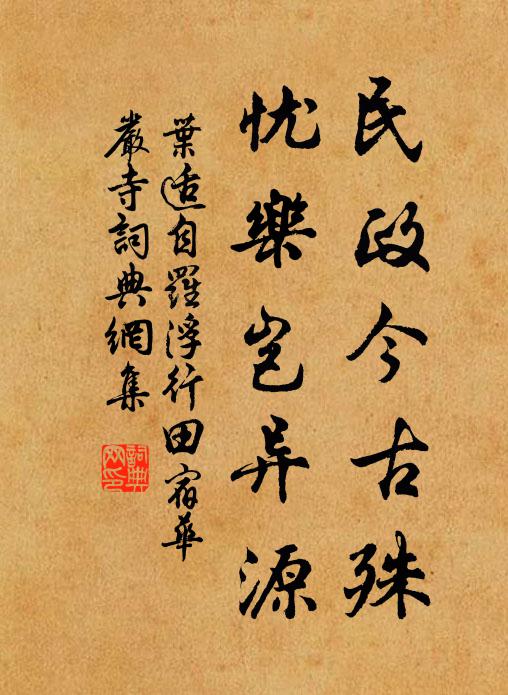 民政今古殊
忧樂岂异源
葉适自羅浮行田宿華
嚴寺詞典網集
詞典
网印